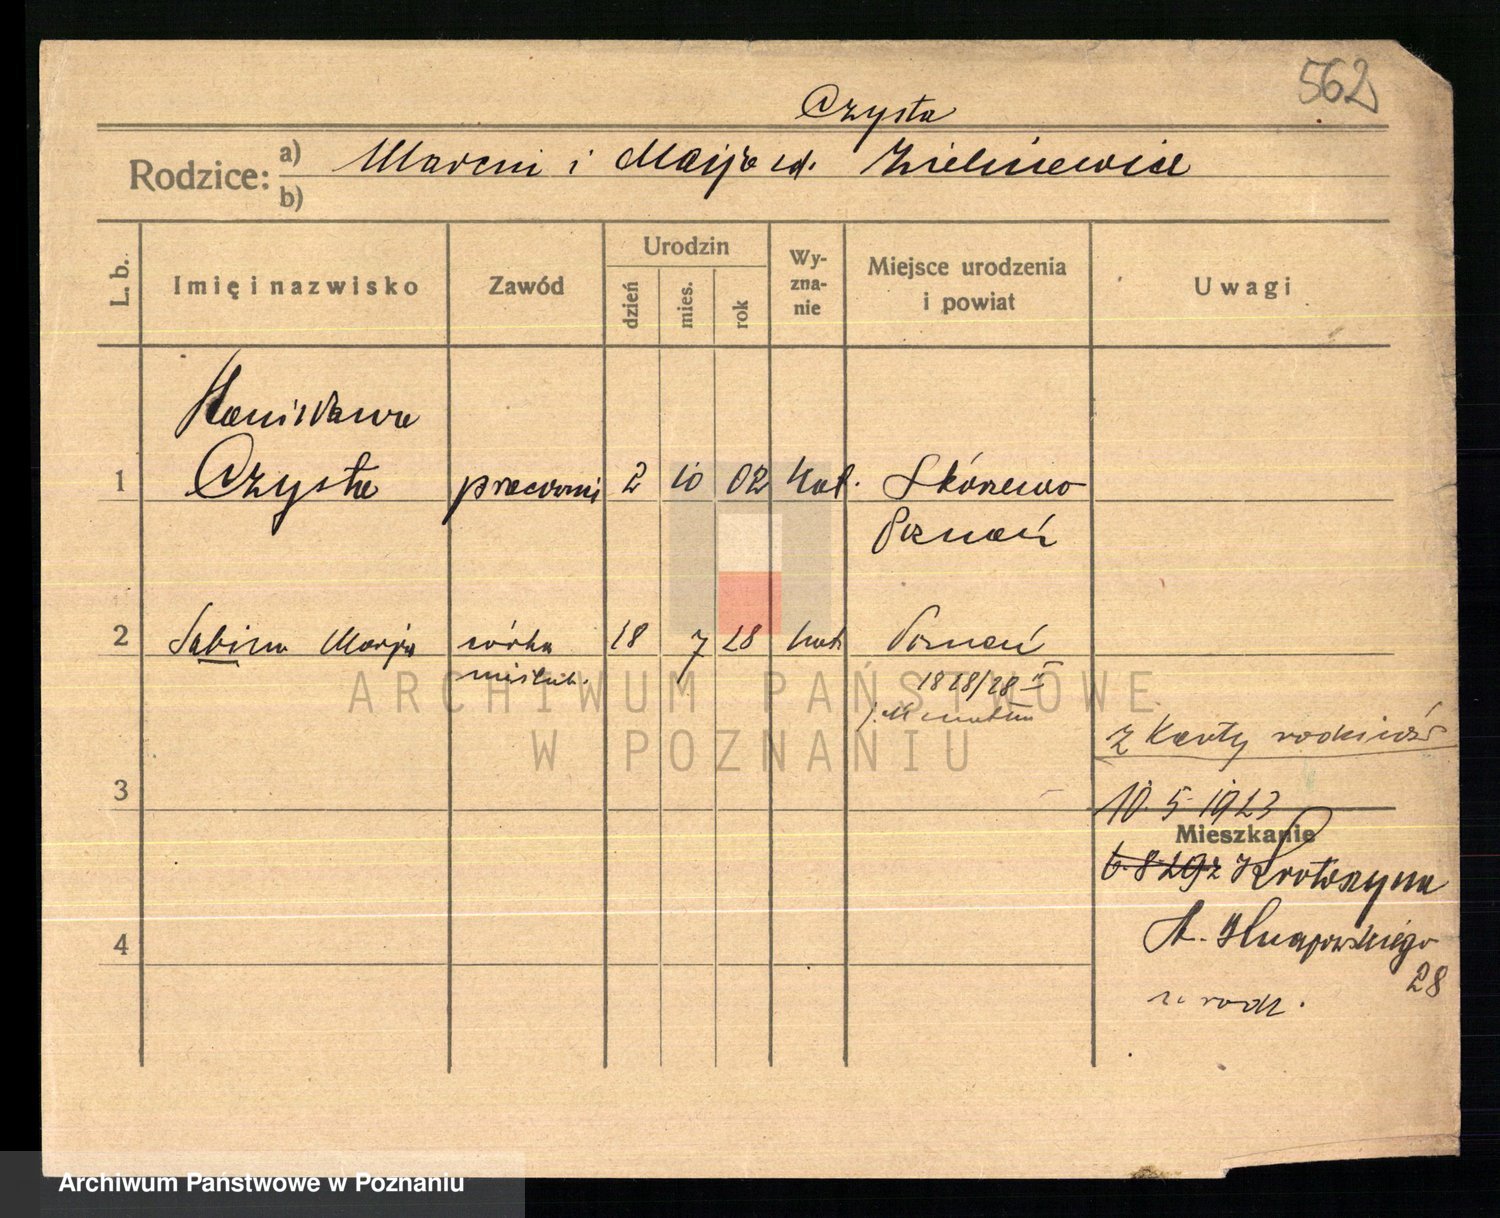 562
Czysta
Rodzice: a) Marcin i Marja zd. Zieleniewicz
b)
L. b.
Imię i nazwisko
Zawód
Urodzin
dzień
mies.
rok
Wy-
zna-
nie
Miejsce urodzenia
i powiat
Uwagi
Stanisława
1 Czysta pracowni 2 10 02 kat. Skórzewo
Poznań
2 Sabina Marja córka 18 7 28 kat. Poznań
nieślub. 1828/28 II
z Karty rodziców
3
10.5.1923
Mieszkanie
6.8.29 z Krotoszyna
4
28
u rodz.
ARCHIWUM PAŃSTWOWE
W POZNANIU
Archiwum Państwowe w Poznaniu